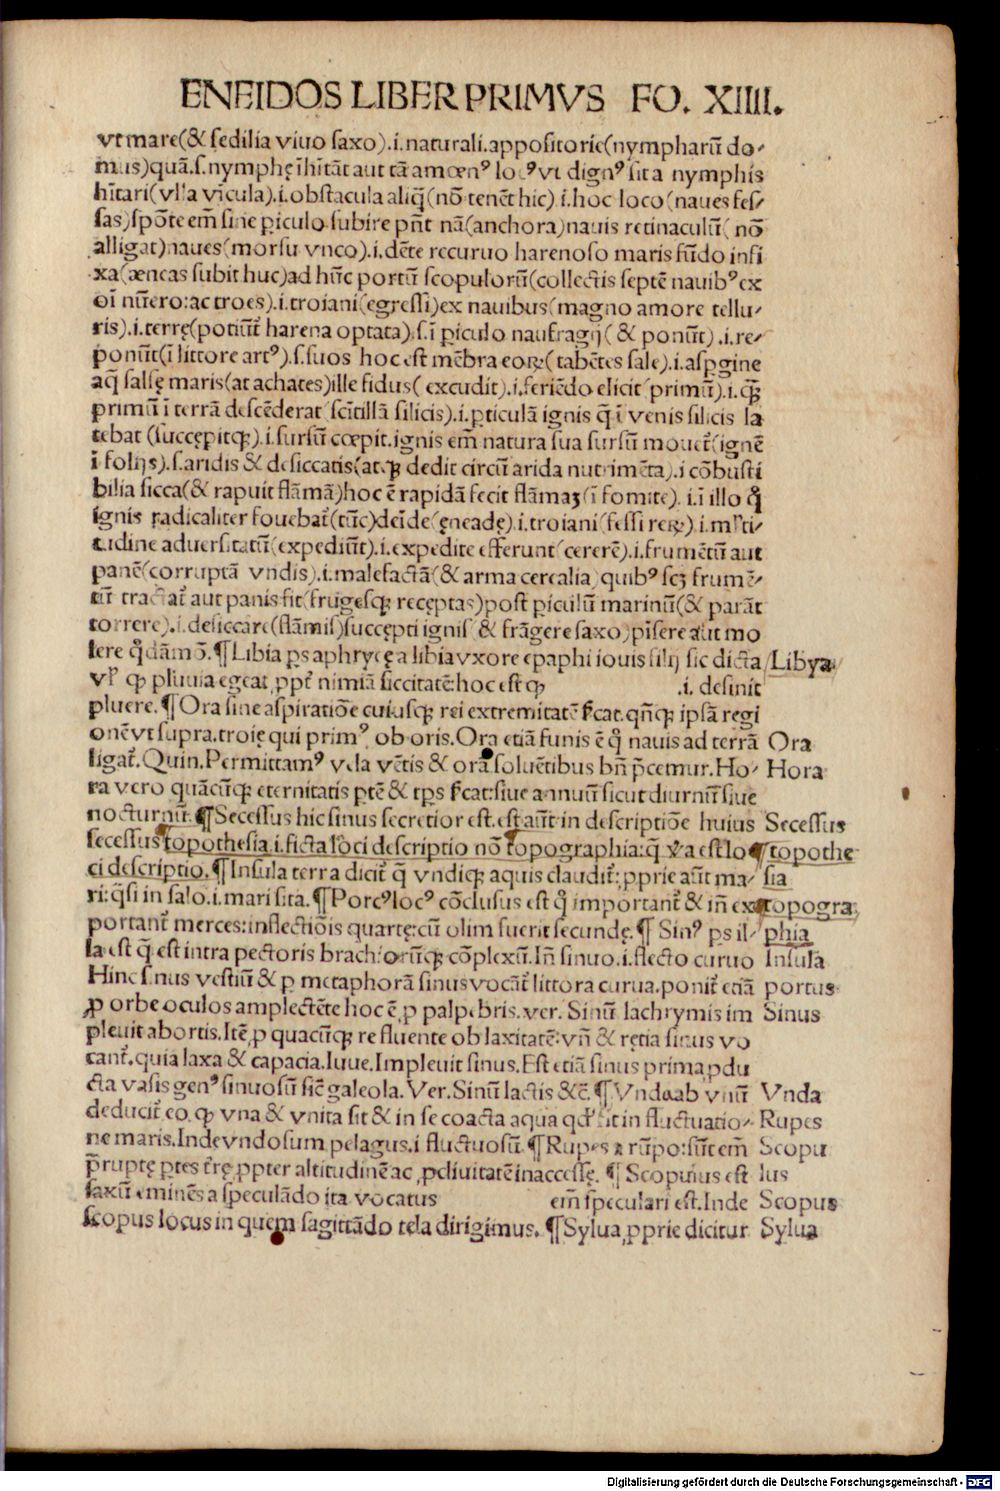 ENEIDOS LIBER PRIMVS FO. XIIII.
vt mare(& sedilia viuo saxo).i.naturali.appositorie(nympharū do-
mus)quā.s.nymphę īhītāt aut tā amœnꝰ locꝰ vt dignꝰ sit a nymphis
hītari(vlla vīcula).i.obstacula aliq̄(nō tenēt hic).i.hoc loco(naues fes-
sas)spōte em̄ sine piculo subire pn̄t nā(anchora)nauis retinaculū(nō
alligat)naues(morsu vnco).i.dēte recuruo harenoso maris fūdo infi
xa(æneas subit huc)ad hūc portū scopulorū(collectis septē nauibꝰ ex
oī nūero:ac troes).i.troiani(egressi)ex nauibus(magno amore tellu-
ris).i.terrę(potiūt̄ harena optata).s.ī piculo naufragij(& ponūt).i.re-
ponūt(ī littore artꝰ).s.suos hoc est mēbra eoꝝ(tabētes sale).i.aspgine
aq̄ salsę maris(at achates)ille fidus(excudit).i.feriēdo elicit(primū).i.qꝫ
primū ī terrā descēderat(scītillā silicis).i.pticulā ignis q̄ ī venis silicis la
tebat(succępitqꝫ).i.sursū cœpit.ignis em̄ natura sua sursū mouet̄(ignē
ī folijs).s.aridis & desiccatis(atqꝫ dedit circū arida nutrimēta).i cōbusti
bilia sicca(& rapuit flāmā)hoc ē rapidā fecit flāmaꝫ(ī fomite).i.ī illo q̊
ignis radicaliter fouebat̄(tūc)deīde(ęneadę).i.troiani(fessi reꝝ).i.ml̄ti-
tudine aduersitatū(expediūt).i.expedite efferunt(cererē).i.frumētū aut
panē(corruptā vndis).i.malefactā(& arma cerealia)quibꝰ scꝫ frumē-
tū tractat̄ aut panis fit(frugesqꝫ receptas)post piculū marinū(& parāt
torrere).i.desiccare(flāmis)succepti ignis(& frāgere saxo)pīsere aut mo
lere q̊dāmō.¶Libia ps aphrycę a libia vxore epaphi iouis filij sic dicta Libya
vl̄ qꝫ pluuia egeat ꝓpt̄ nimiā siccitatē:hoc est qꝫ .i. desinit
pluere.¶Ora sine aspiratiōe cuiusqꝫ rei extremitatē s̄cat.qn̄qꝫ ipsā regi
onē vt supra.troię qui primꝰ ob oris.Ora etiā funis ē q̊ nauis ad terrā Ora
ligat̄.Quin.Permittamꝰ vela vētis & orā soluētibus bn̄ p̄cemur.Ho- Hora
ra vero quācūqꝫ eternitatis ptē & tp̄s s̄cat:siue annuū sicut diurnū siue
nocturnū.¶Secessus hic sinus secretior est.est aūt in descriptiōe huius Secessus
secessus topothesia.i.ficta loci descriptio nō topographia:q̄ v̄a est lo topothe
ci descriptio.¶Insula terra dicit̄ q̄ vndiqꝫ aquis claudit̄:ꝓprie aūt ma- sia
ri:q̄si in salo.i.mari sita.¶Portꝰ locꝰ cōclusus est q̊ important̄ & in̄ ex topogra
portant̄ merces:inflectiōis quartę:cū olim fuerit secundę.¶Sinꝰ ps il- phia
la est q̄ est intra pectoris brachiorūqꝫ cōplexū.In̄ sinuo.i.flecto curuo Insula
Hinc sinus vestiū & p metaphorā sinus vocāt̄ littora curua.ponit̄ etiā portus
ꝓ orbe oculos amplectēte hoc ē ꝓ palpebris.ver.Sinū lachrymis im Sinus
pleuit abortis.Itē ꝓ quacūqꝫ re fluente ob laxitatē:vn̄ & rętia sinus vo
cant̄.quia laxa & capacia.Iuue.Impleuit sinus.Est etiā sinus prima ꝓdu
cta vasis genꝰ sinuosū sic̄ galeola.Ver.Sinū lactis &c̄.¶Vnda ab vnū Vnda
deducit̄ eo qꝫ vna & vnita sit & in se coacta aqua qd̄ sit in fluctuatio- Rupes
ne maris.Inde vndosum pelagus.i fluctuosū.¶Rupes a rūpo:sūt em̄ Scopu
p̄ruptę ptes t̄rę ꝓpter altitudinē ac ꝓcliuitatē inaccessę.¶Scopulus est lus
saxū eminēs a speculādo ita vocatus em̄ speculari est.Inde Scopus
scopus locus in quem sagittādo tela dirigimus.¶Sylua ꝓprie dicitur Sylua
Digitalisierung gefördert durch die Deutsche Forschungsgemeinschaft - DFG